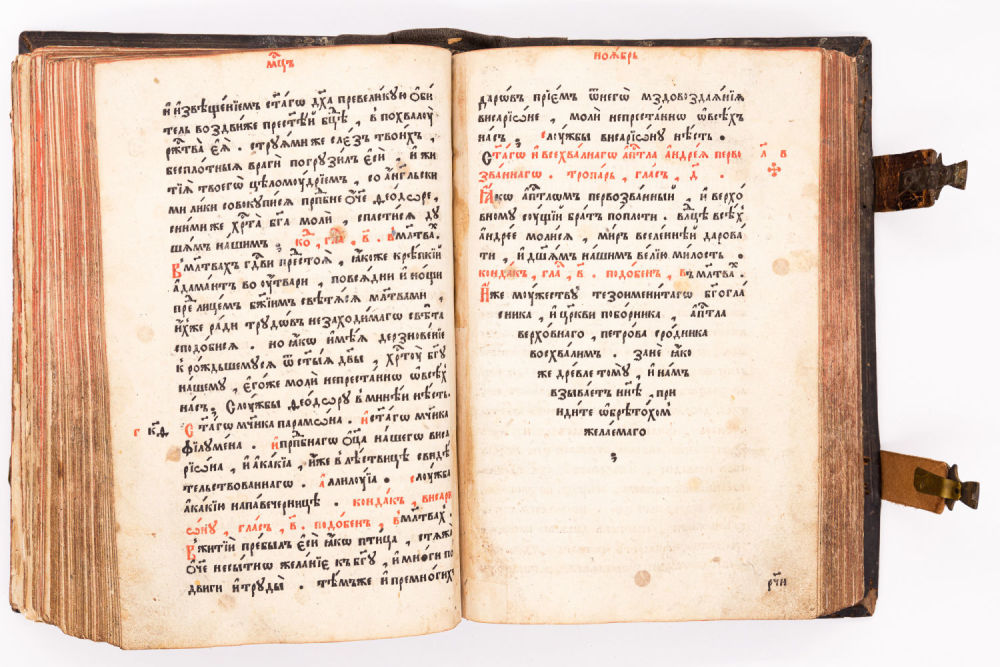 мц҃ъ
и҆ и҆звѣщенїемъ ст҃а́гѡ дх҃а превели́кую ѻ҆би
тель воздви́же прест҃е́й бц҃ѣ , в̾ похвалоу
рж҃тва̀ є҆ѧ̀ . строуѧ́ми же сле́зъ твои́хъ ,
беспло́тныѧ врагѝ погрузи́лъ є҆сѝ , и҆ жи
тїѧ̀ твоегѡ̀ цѣломоу́дрїемъ , со а҆́гг҃льски
ми ли́ки совокупи́сѧ прп҃бне ѻ҆́ч҃е ѳео́дѡре ,
сни́ми же , хрⷭ҇та̀ бг҃а молѝ , спасти́сѧ ду
ша́мъ на́шимъ . ко , гла , в҃ . в̾мл҃тва .
В̾мл҃твахъ гдⷭ҇ви прест҃оѧ̀ , ꙗ҆́коже крѣ́пкїй
а҆дама́нтъ во оу҆́твари , повсѧ́дни и҆ но́щи
пред̾лице́мъ бж҃їимъ свѣтѧ́сѧ мл҃твами ,
и҆́хже ра́ди трудѡ́въ незаходи́магѡ свѣ́та
сподо́бисѧ . но ꙗ҆́кѡ и҆мѣ́ѧ дерзнове́нїе
к̾ ро́ждьшемусѧ ѿ ст҃ы́ѧ дв҃ы , хрⷭ҇тоу̀ бг҃у
на́шему , є҆го́же молѝ непреста́ннѡ ѡ҆всѣ́хъ
на́съ . Слу́жбы ѳео́дѡру в̾мине́и нѣ́сть .
г к҃д Ст҃а́гѡ мч҃нка парамѡ́на . и҆ ст҃а́гѡ мч҃нка
фїлуме́на . и҆ прп҃бнагѡ ѻ҆ц҃а̀ на́шегѡ виса
рїѡ́на , и҆ а҆ка́кїа , и҆́же в̾лѣ́ствицѣ свидѣ́
тельствованнагѡ . а҆ллилоу́їа . слоу́жба
а҆ка́кїю на павече́рницѣ . конда́къ , висарї
ѡ́ну , гла́съ , в҃ . подо́бенъ , в̾мл҃твахъ .
В̾житїѝ пребы́лъ є҆сѝ ꙗ҆́кѡ пти́ца , стѧжа́
ѻ҆́ч҃е несы́тно жела́нїе къ бг҃у , и҆ мно́ги по
дви́ги и҆ труды̀ . тѣ́мъже и҆ премно́гихъ
ноѧ́брь
дарѡ́въ прїе́мъ ѿ негѡ̀ мздовоздаѧ́нїѧ
висарїѡ́не , молѝ непреста́ннѡ ѡ҆всѣ́хъ
на́съ . слоу́жбы висарїѡ́ну нѣ́сть .
Ст҃а́гѡ и҆ всехва́льнагѡ а҆пⷭ҇тла а҆ндре́ѧ перво л҃ в
зва́ннагѡ . тропа́рь , гла́съ , д҃ .
Ꙗ҆́кѡ а҆пⷭ҇тлѡмъ первозва́нныи , и҆ верхо́
вному соу́щїи бра́тъ по пло́ти . влⷣце всѣ́хъ
а҆ндре́е моли́сѧ , ми́ръ вселе́ннѣй дарова́
ти , и҆ дш҃а́мъ на́шимъ ве́лїю ми́лость .
конда́къ , гла , в҃ . подо́бенъ , в̾мл҃тва .
И҆́же моу́жеству тезоимени́тагѡ бг҃огла́
сника , и҆ цр҃кви побо́рника , а҆пⷭ҇тла
верхо́внаго , петро́ва сро́дника
восхва́лимъ . занѐ ꙗ҆́ко
же дре́вле тому̀ , и҆ на́мъ
взыва́етъ нн҃ѣ , прїи
иди́те ѡ҆брѣто́хомъ
жела́емаго
рч҃и